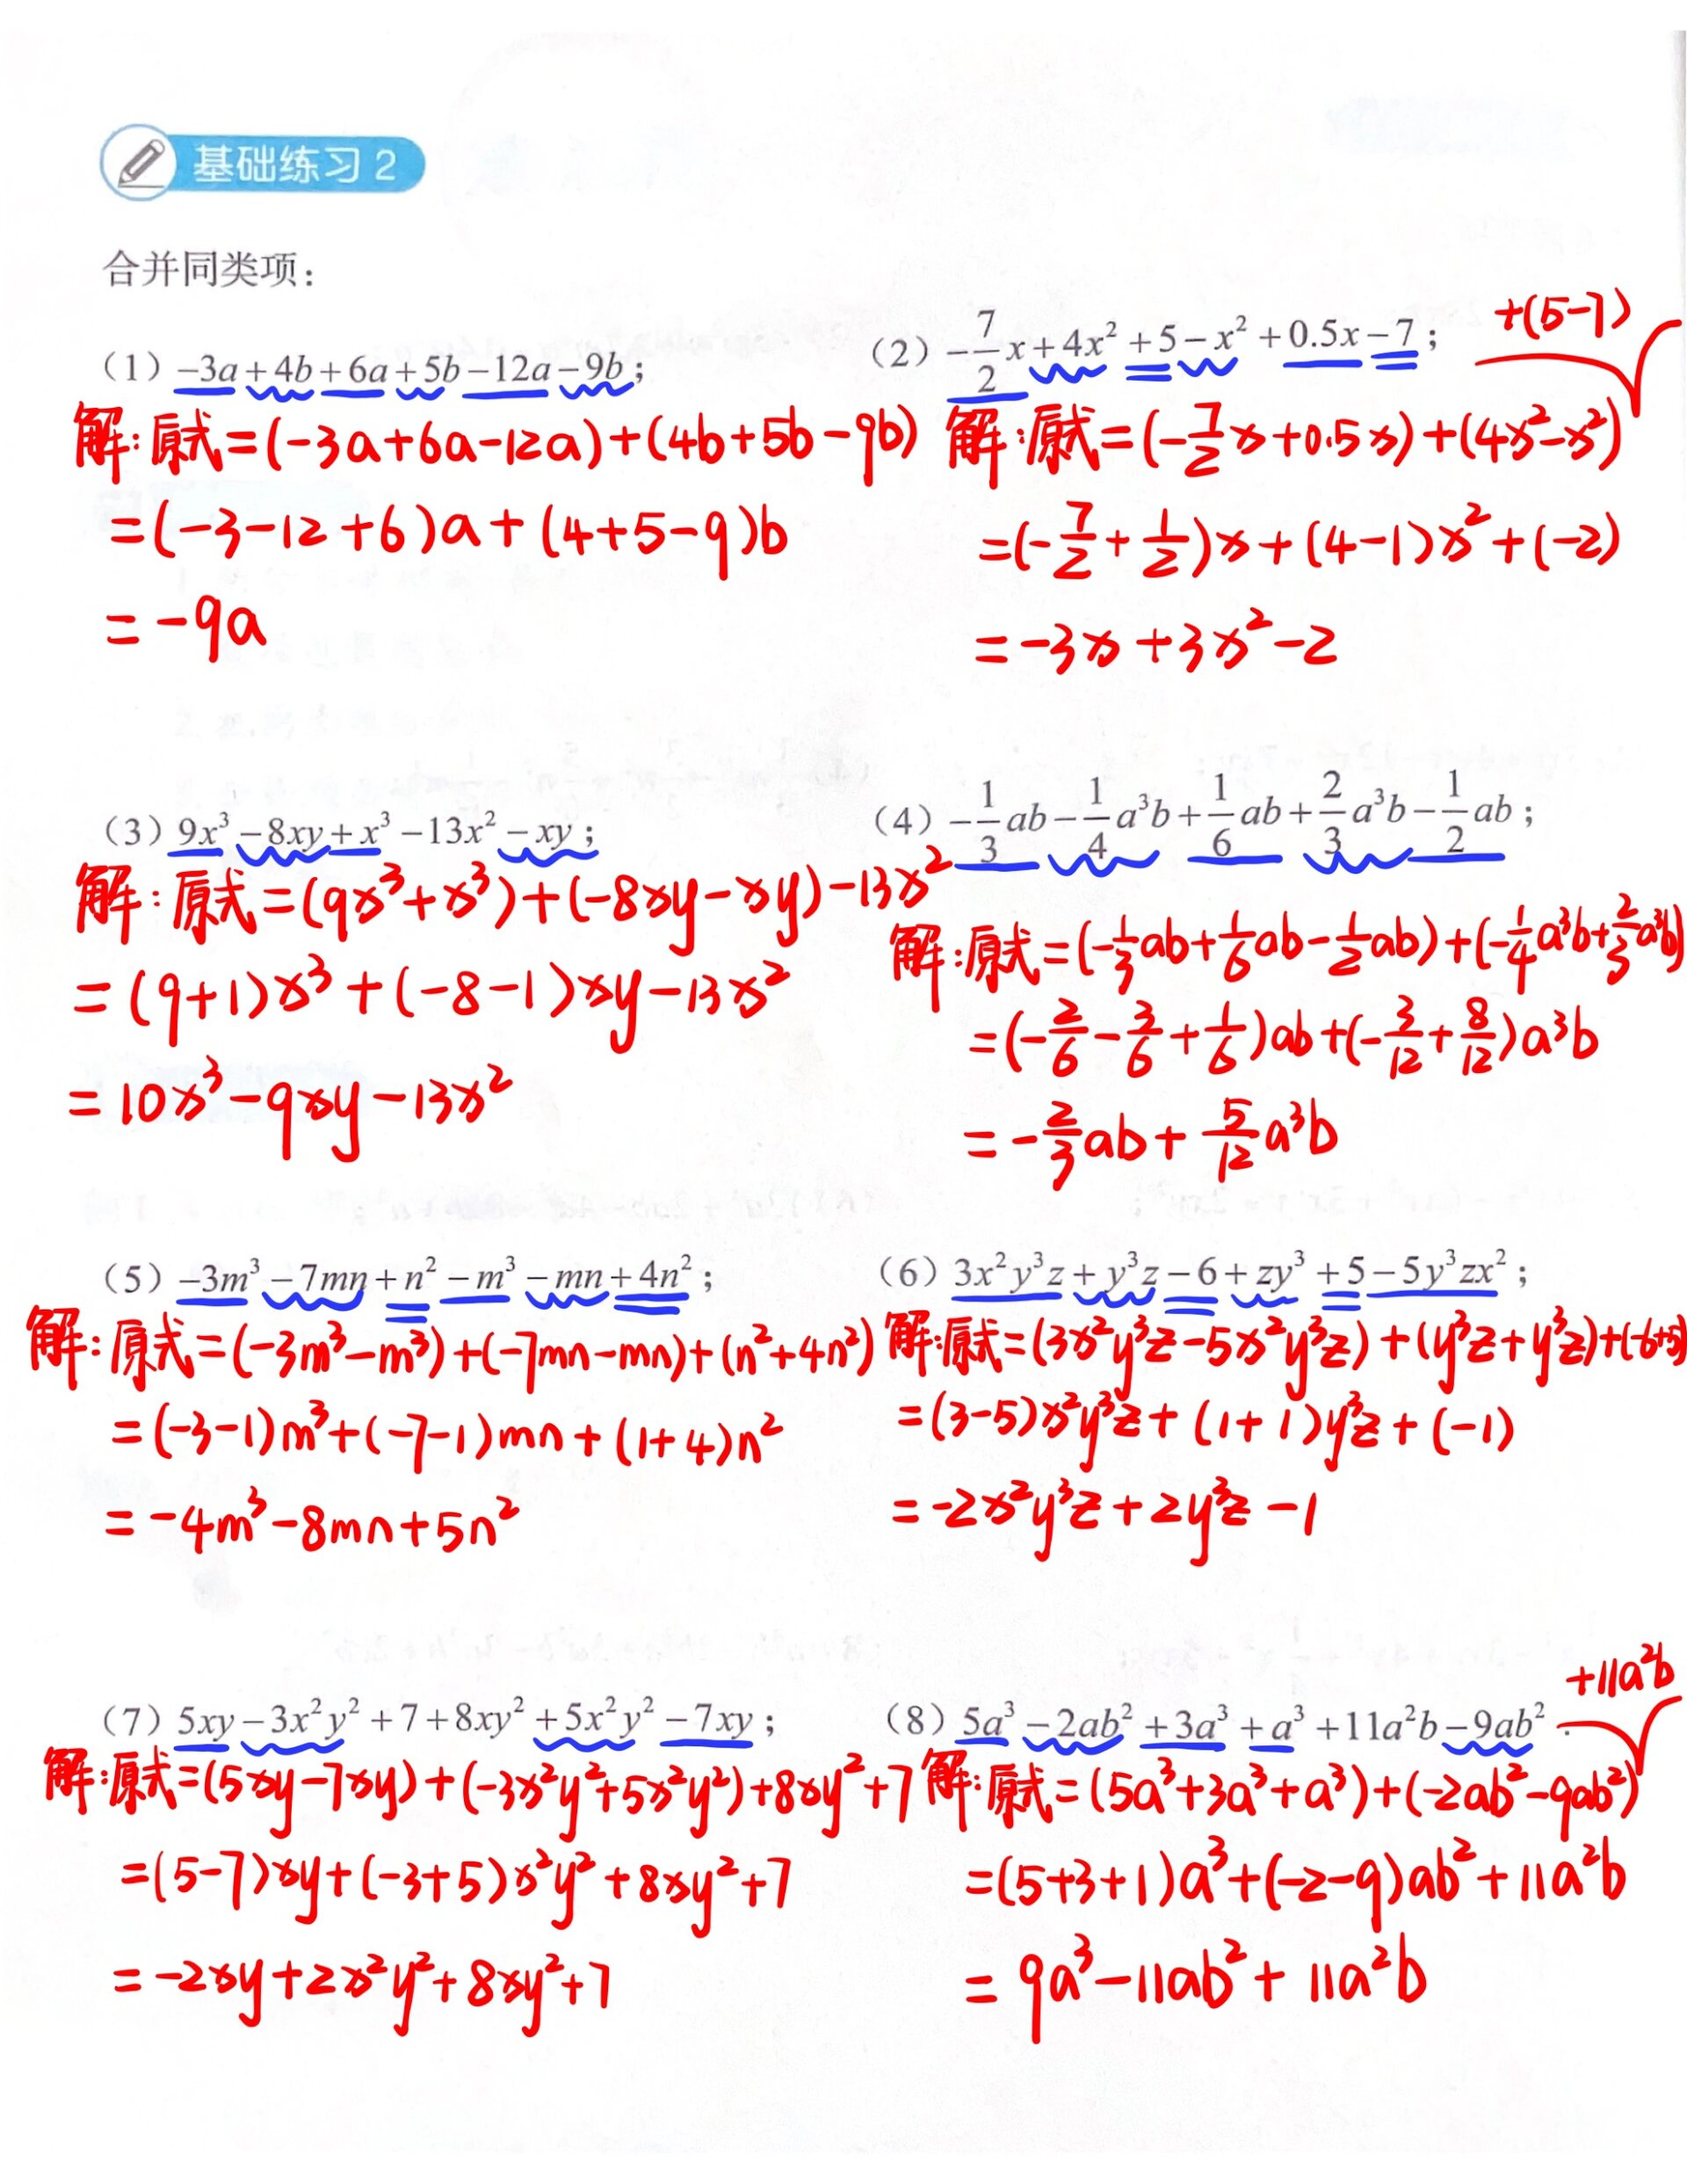 基础练习 2
合并同类项：
（1）−3a+4b+6a+5b−12a−9b；
解：原式=(−3a+6a−12a)+(4b+5b−9b)
=(−3−12+6)a+(4+5−9)b
=−9a
（2）−7/2x+4x²+5−x²+0.5x−7；
解：原式=(−7/2x+0.5x)+(4x²−x²)+(5−7)
=(−7/2+1/2)x+(4−1)x²+(−2)
=−3x+3x²−2
（3）9x³−8xy+x³−13x²−xy；
解：原式=(9x³+x³)+(−8xy−xy)−13x²
=(9+1)x³+(−8−1)xy−13x²
=10x³−9xy−13x²
（4）−1/3ab−1/4a³b+1/6ab+2/3a³b−1/2ab；
解：原式=(−1/3ab+1/6ab−1/2ab)+(−1/4a³b+2/3a³b)
=(−2/6−3/6+1/6)ab+(−3/12+8/12)a³b
=−2/3ab+5/12a³b
（5）−3m³−7mn+n²−m³−mn+4n²；
解：原式=(−3m³−m³)+(−7mn−mn)+(n²+4n²)
=(−3−1)m³+(−7−1)mn+(1+4)n²
=−4m³−8mn+5n²
（6）3x²y³z+y³z−6+zy³+5−5y³zx²；
解：原式=(3x²y³z−5x²y³z)+(y³z+y³z)+(−6+5)
=(3−5)x²y³z+(1+1)y³z+(−1)
=−2x²y³z+2y³z−1
（7）5xy−3x²y²+7+8xy²+5x²y²−7xy；
解：原式=(5xy−7xy)+(−3x²y²+5x²y²)+8xy²+7
=(5−7)xy+(−3+5)x²y²+8xy²+7
=−2xy+2x²y²+8xy²+7
（8）5a³−2ab²+3a³+a³+11a²b−9ab²．
解：原式=(5a³+3a³+a³)+(−2ab²−9ab²)+11a²b
=(5+3+1)a³+(−2−9)ab²+11a²b
=9a³−11ab²+11a²b